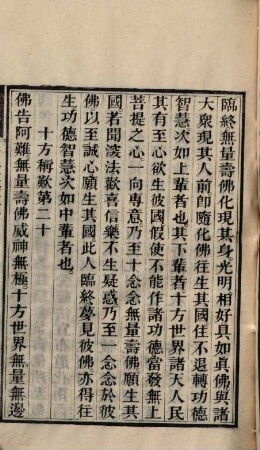 臨終無量壽佛化現其身光明相好具如真佛與諸
大衆現其人前卽隨化佛往生其國住不退轉功德
智慧次如上輩者也其下輩者十方世界諸天人民
其有至心欲生彼國假使不能作諸功德當發無上
菩提之心一向專意乃至十念念無量壽佛願生其
國若聞深法歡喜信樂不生疑惑乃至一念念於彼
佛以至誠心願生其國此人臨終夢見彼佛亦得往
生功德智慧次如中輩者也
十方稱歎第二十
佛告阿難無量壽佛威神無極十方世界無量無邊